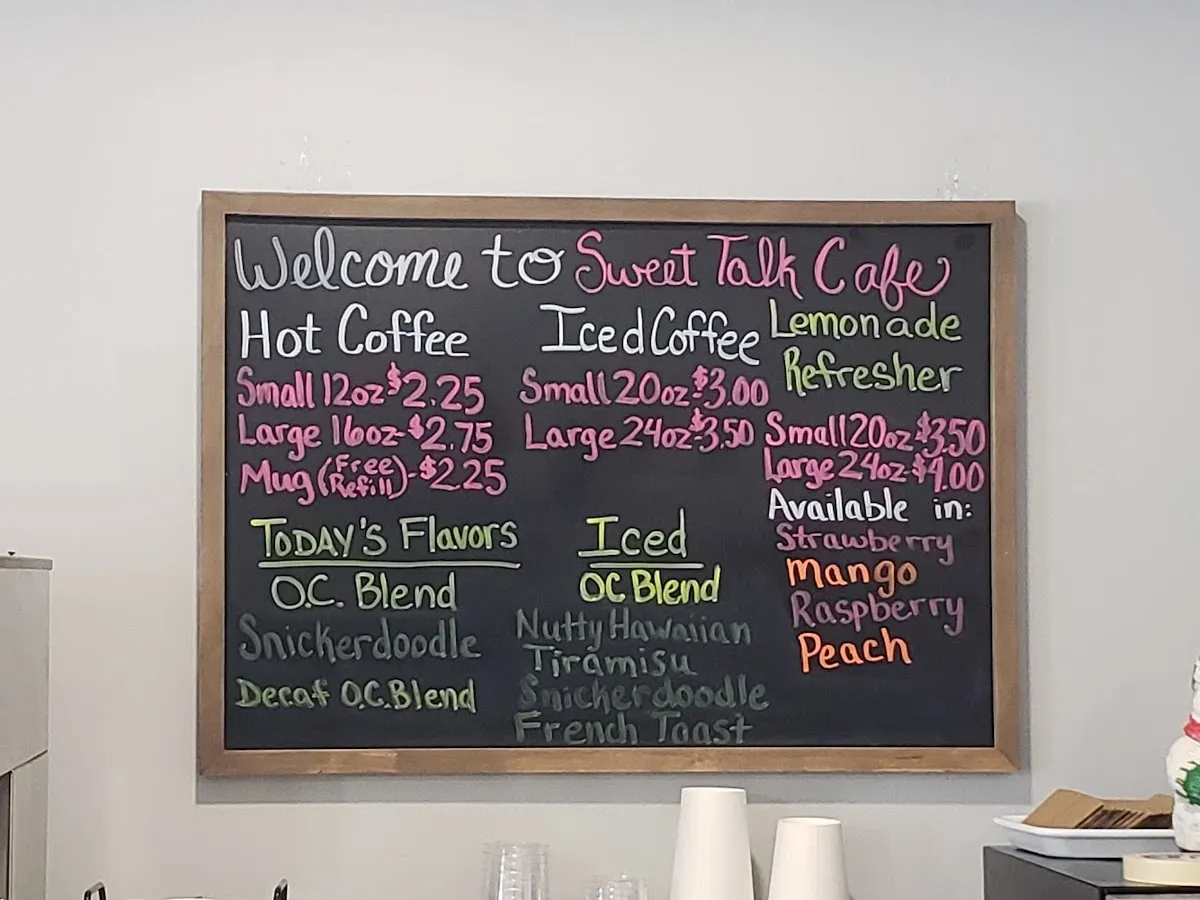 Welcome to Sweet Talk Cafe
Hot Coffee
Small 12oz $2.25
Large 16oz-$2.75
Mug (Free Refill)-$2.25
TODAY'S Flavors
O.C. Blend
Snickerdoodle
Decaf O.C. Blend
Iced Coffee
Small 20oz-$3.00
Large 24oz-$3.50
Iced
OC Blend
Nutty Hawaiian
Tiramisu
Snickerdoodle
French Toast
Lemonade
Refresher
Small 20oz $3.50
Large 24oz-$4.00
Available in:
Strawberry
Mango
Raspberry
Peach